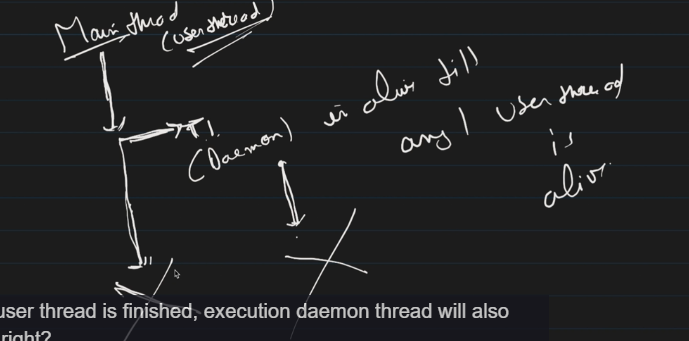 Main thread
(user thread)
T1.
(Daemon) is alive till
any 1 user thread
is
alive.
user thread is finished, execution daemon thread will also
right?